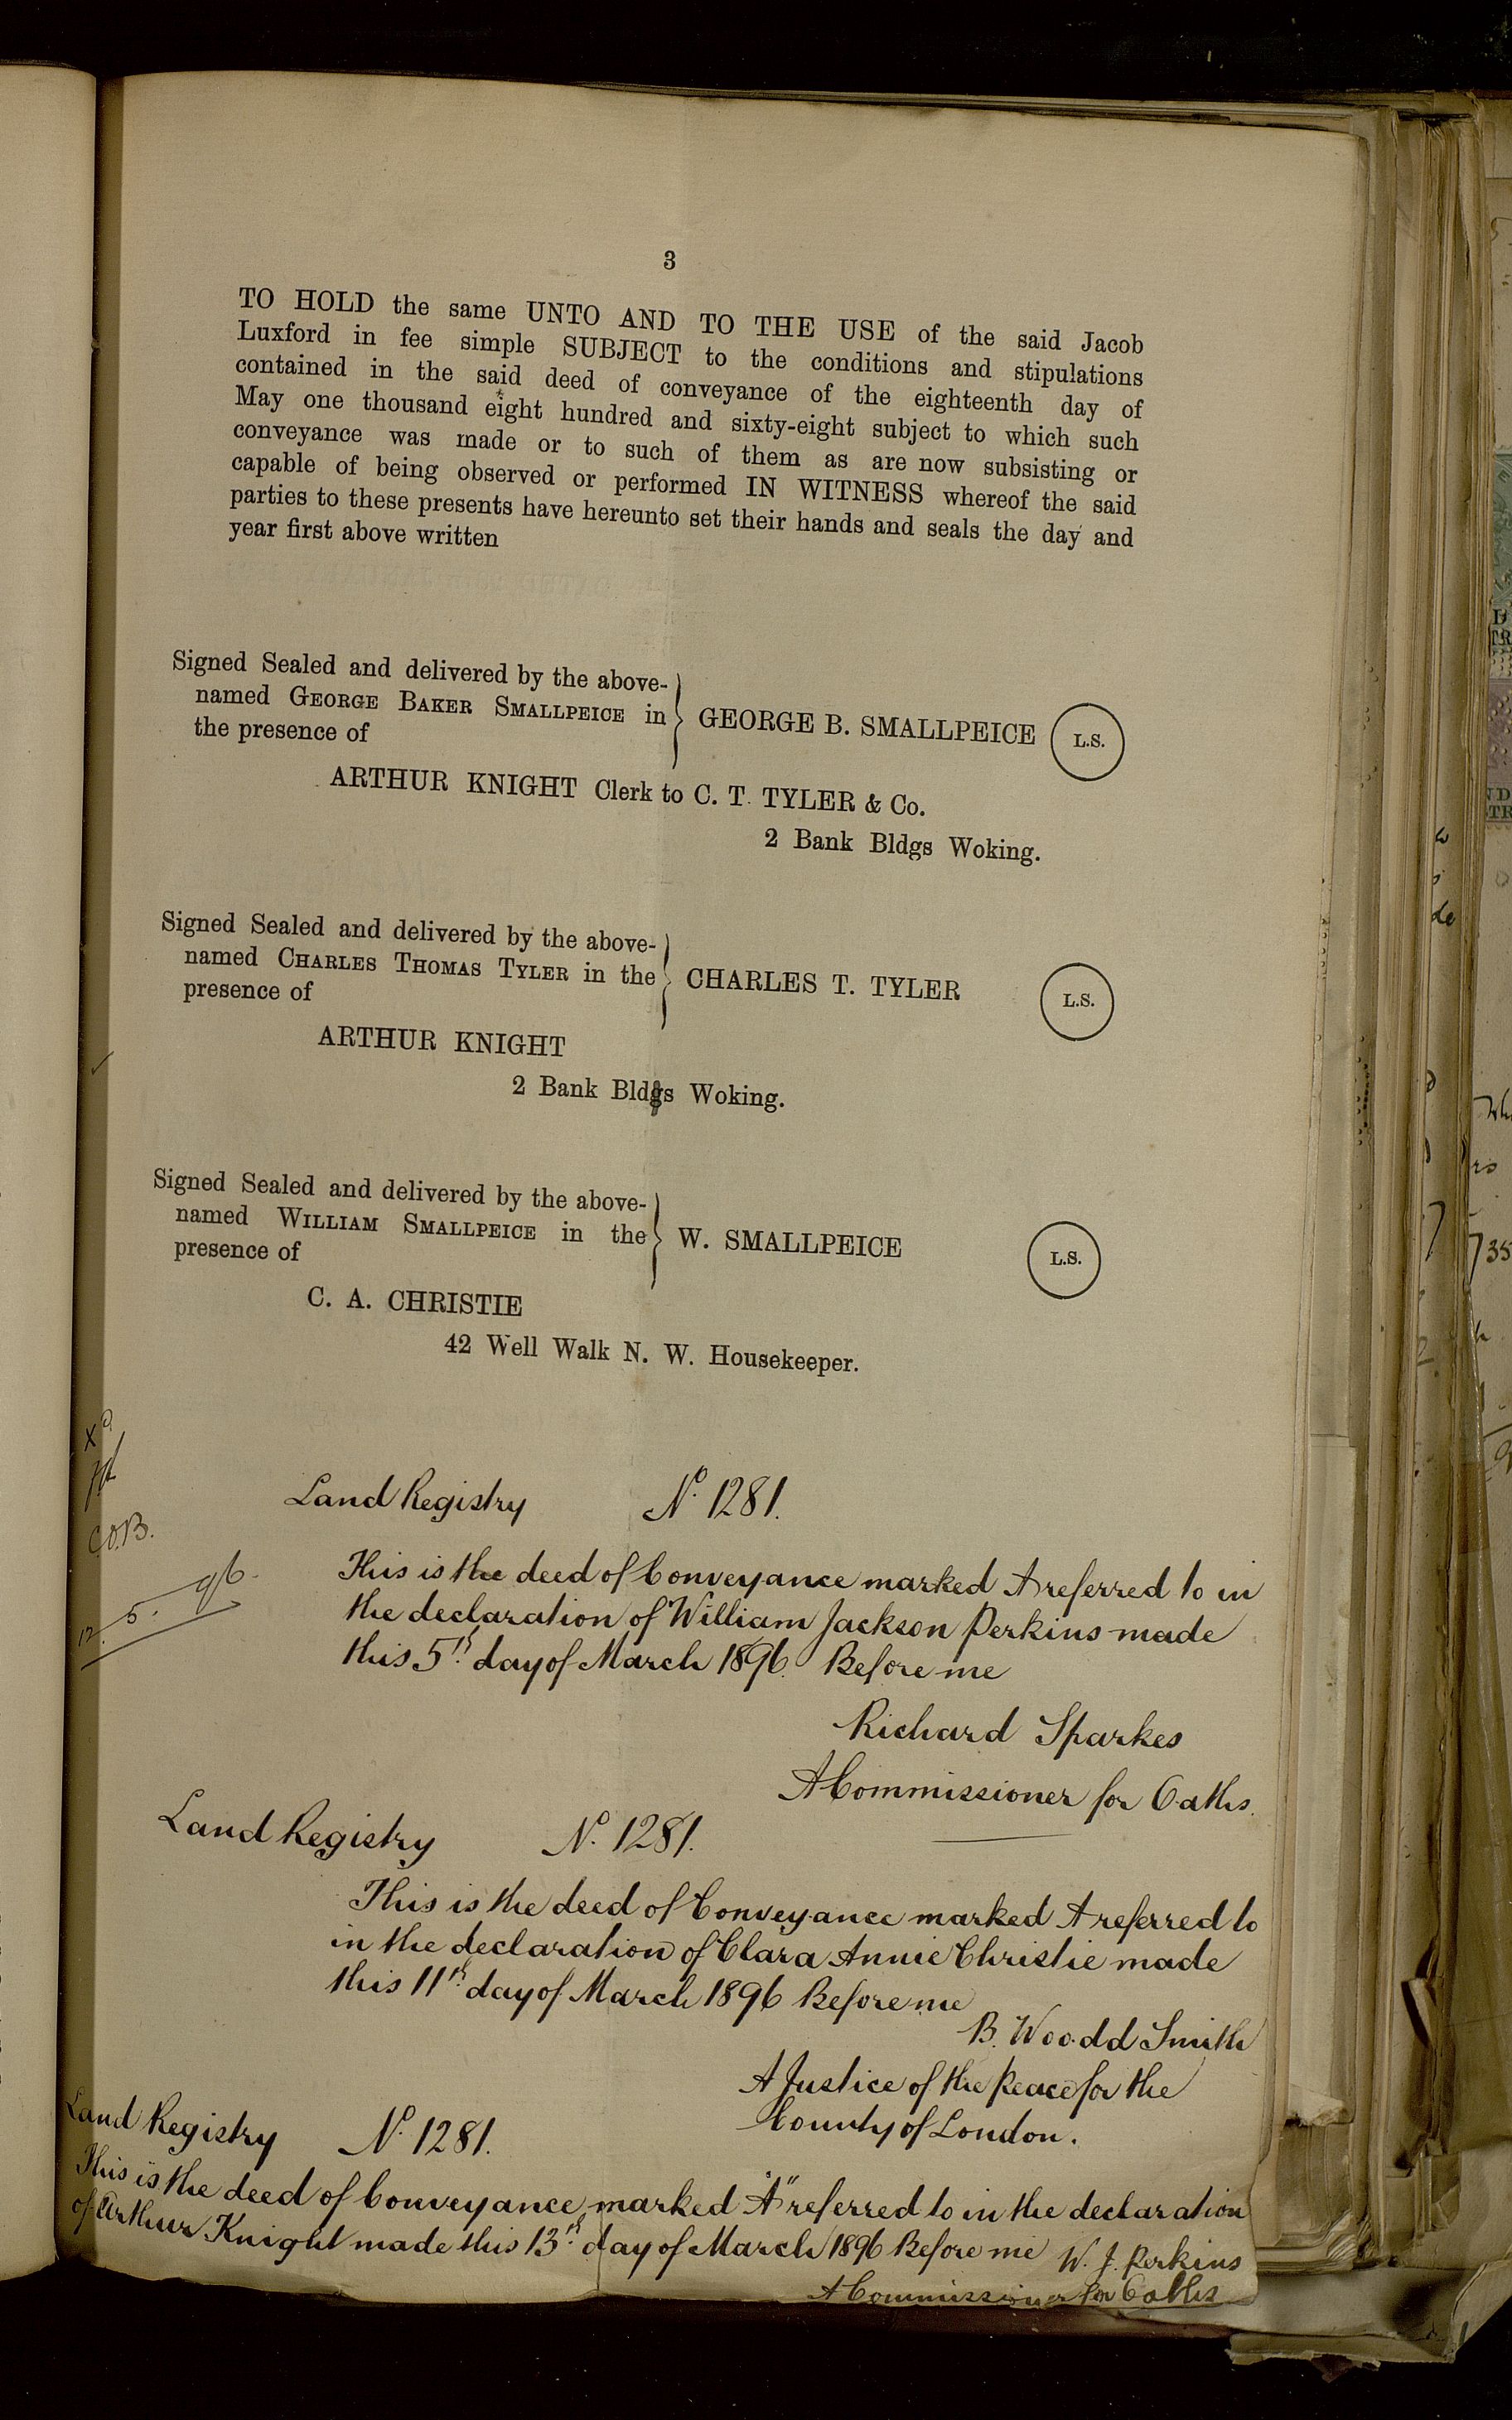 3
TO HOLD the same UNTO AND TO THE USE of the said Jacob
Luxford in fee simple SUBJECT to the conditions and stipulations
contained in the said deed of conveyance of the eighteenth day of
May one thousand eight hundred and sixty-eight subject to which such
conveyance was made or to such of them as are now subsisting or
capable of being observed or performed IN WITNESS whereof the said
parties to these presents have hereunto set their hands and seals the day and
year first above written
Signed Sealed and delivered by the above-
named GEORGE BAKER SMALLPEICE in
the presence of
GEORGE B. SMALLPEICE L.S.
ARTHUR KNIGHT Clerk to C. T. TYLER & Co.
2 Bank Bldgs Woking.
Signed Sealed and delivered by the above-
named CHARLES THOMAS TYLER in the
presence of
CHARLES T. TYLER L.S.
ARTHUR KNIGHT
2 Bank Bldgs Woking.
Signed Sealed and delivered by the above-
named WILLIAM SMALLPEICE in the
presence of
W. SMALLPEICE L.S.
C. A. CHRISTIE
42 Well Walk N. W. Housekeeper.
C.O.B.
12. 5. 96.
Land Registry No. 1281.
This is the deed of Conveyance marked A referred to in
the declaration of William Jackson Perkins made
this 5th. day of March 1896. Before me
Richard Sparkes
A Commissioner for Oaths.
Land Registry No. 1281.
This is the deed of Conveyance marked A referred to
in the declaration of Clara Annie Christie made
this 11th day of March 1896 Before me
B. Woodd Smith
A Justice of the Peace for the
County of London.
Land Registry No. 1281.
This is the deed of Conveyance marked "A" referred to in the declaration
of Arthur Knight made this 13th. day of March 1896 Before me W. J. Perkins
A Commissioner for Oaths